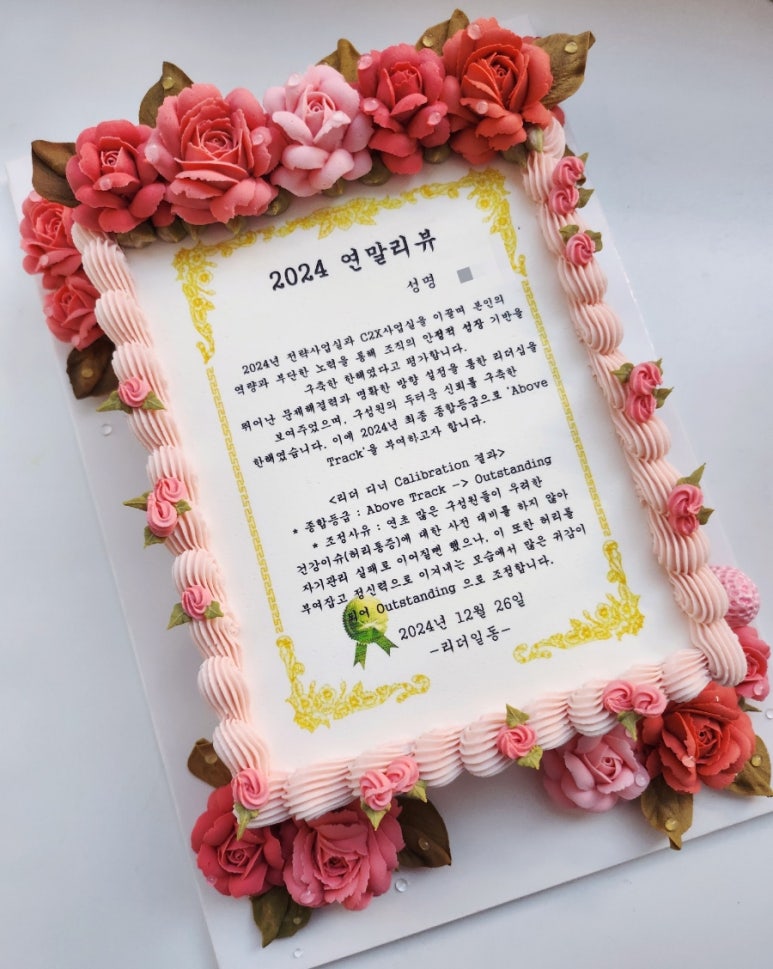 2024 연말리뷰
성명
2024년 전략사업실과 C2X사업실을 이끌며 본인의
역량과 부단한 노력을 통해 조직의 안정적 성장 기반을
구축한 한해였다고 평가합니다.
뛰어난 문제해결력과 명확한 방향 설정을 통한 리더십을
보여주었으며, 구성원의 두터운 신뢰를 구축한
한해였습니다. 이에 2024년 최종 종합등급으로 'Above
Track'을 부여하고자 합니다.
<리더 디너 Calibration 결과>
* 종합등급 : Above Track -> Outstanding
* 조정사유 : 연초 많은 구성원들이 우려한
건강이슈(허리통증)에 대한 사전 대비를 하지 않아
자기관리 실패로 이어질뻔 했으나, 이 또한 허리를
부여잡고 정신력으로 이겨내는 모습에서 많은 귀감이
되어 Outstanding 으로 조정합니다.
2024년 12월 26일
-리더일동-